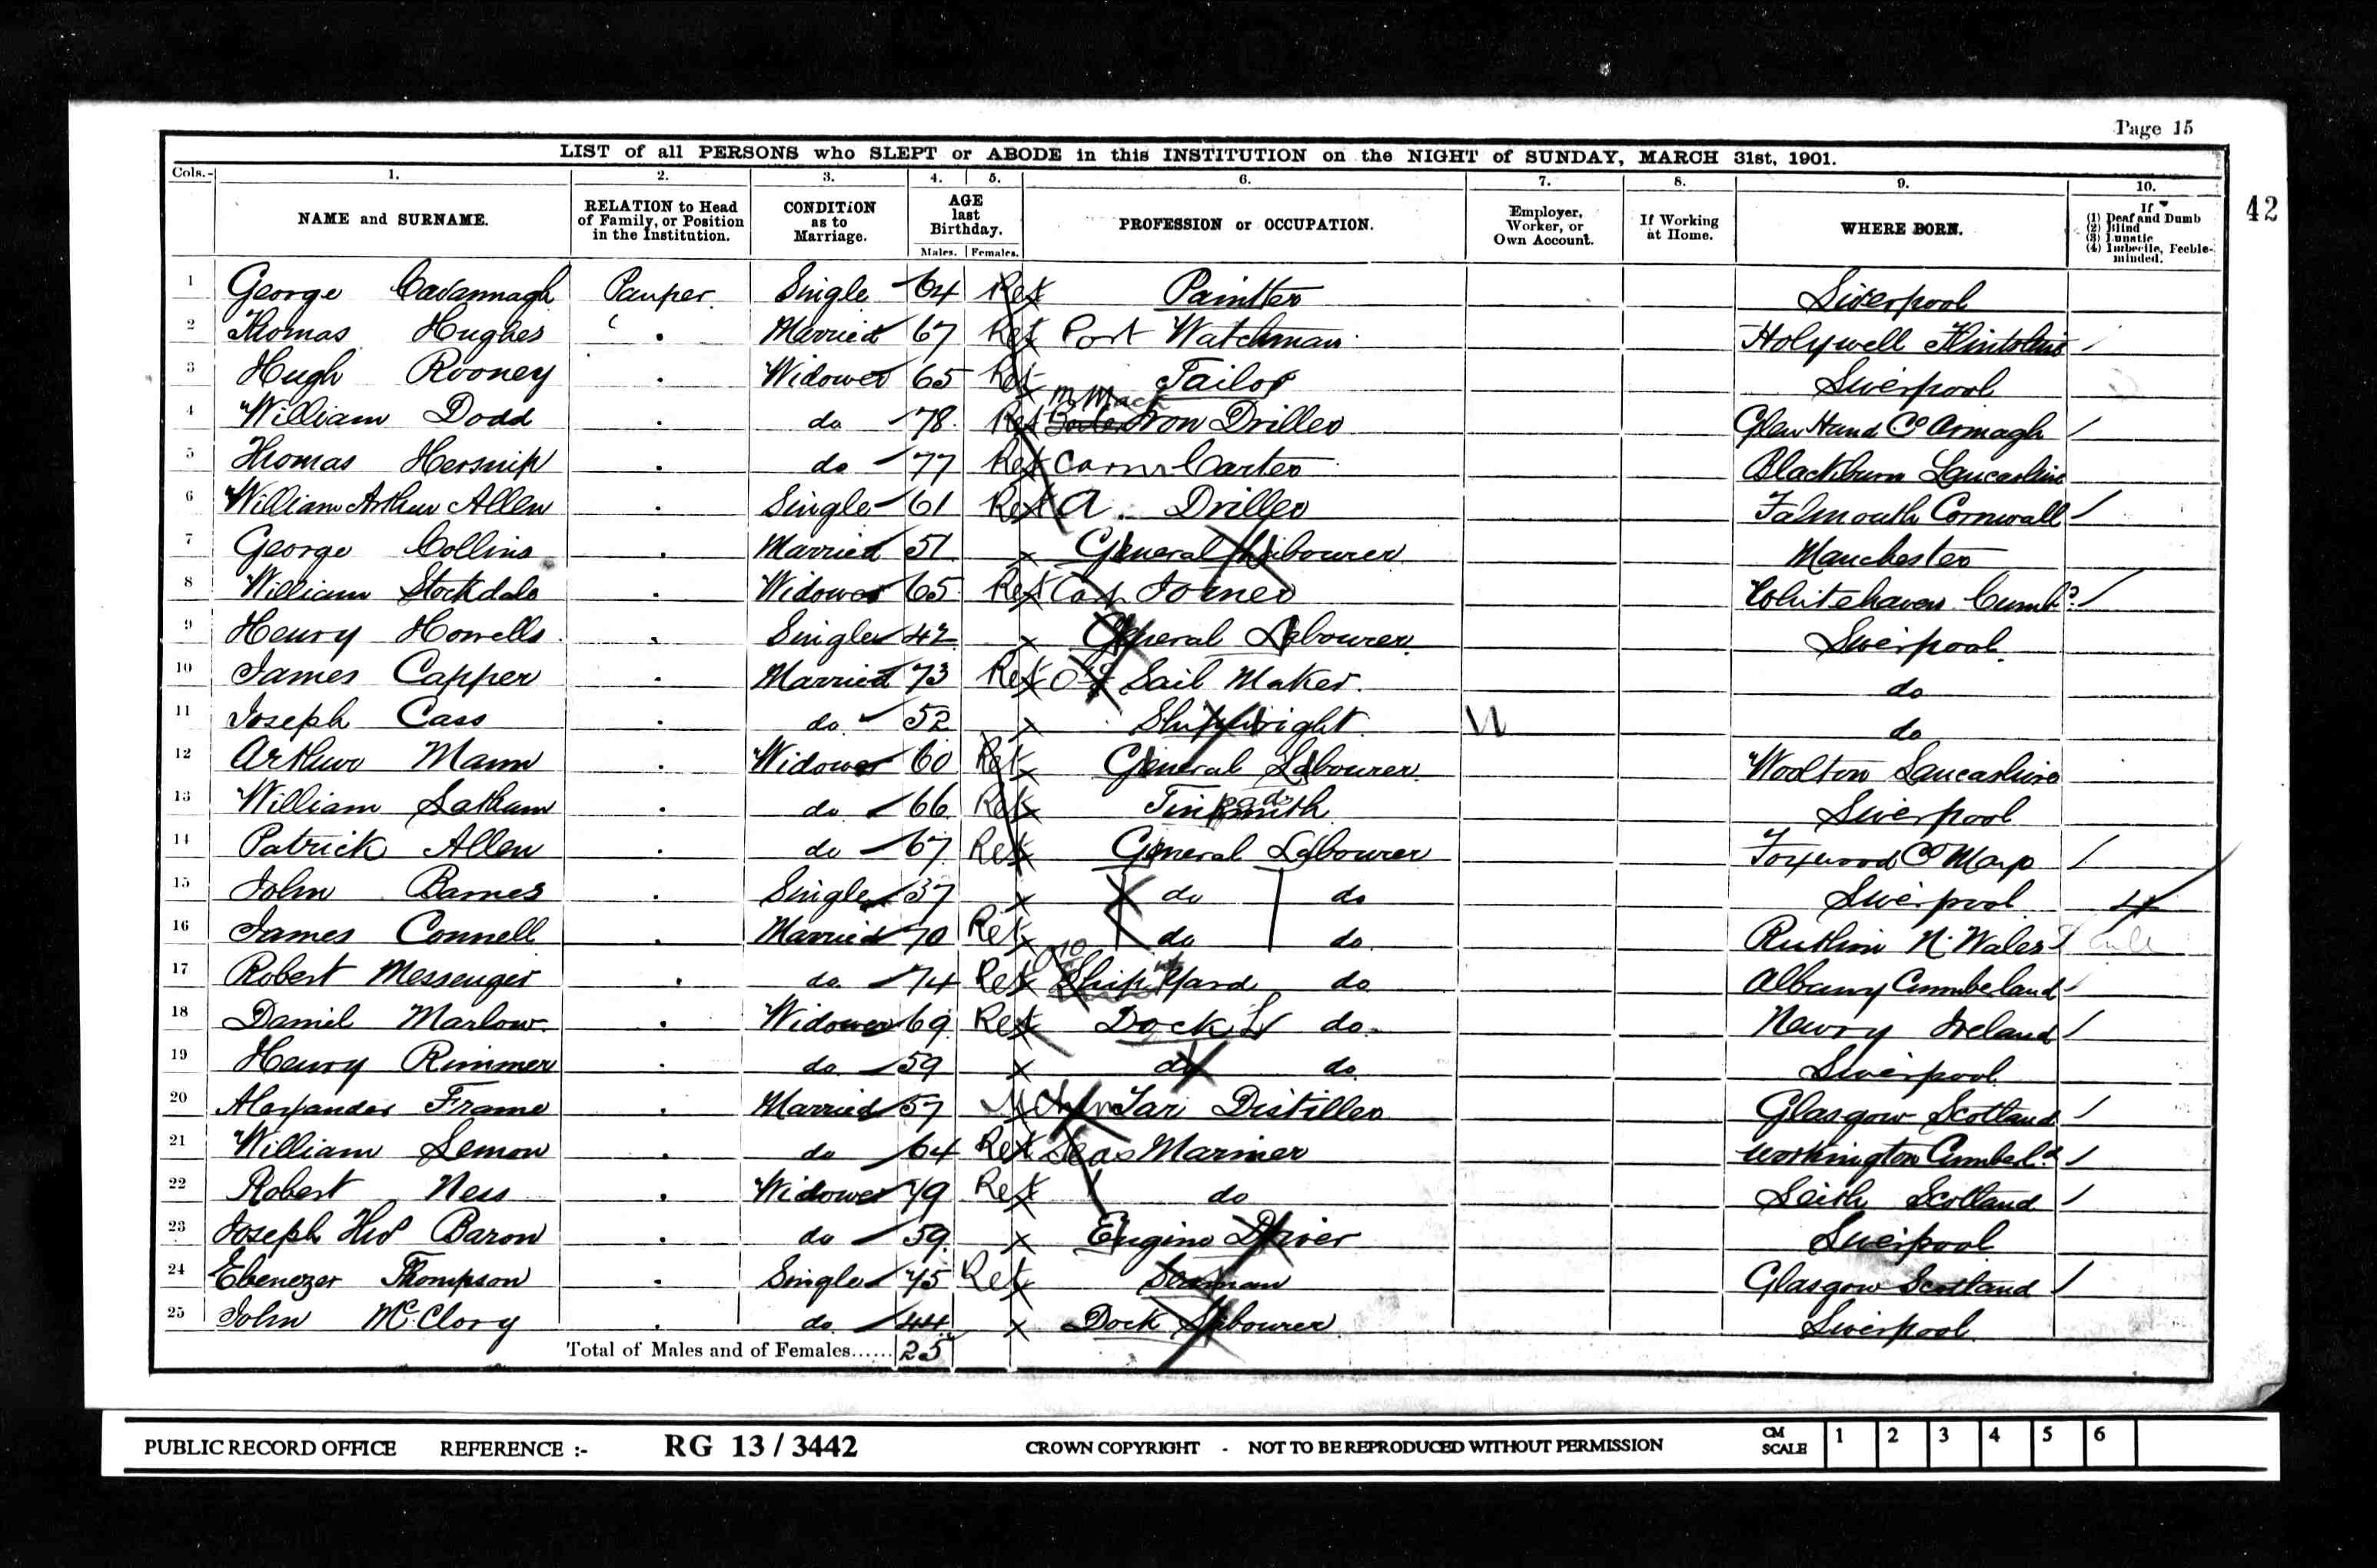 Page 15
LIST of all PERSONS who SLEPT or ABODE in this INSTITUTION on the NIGHT of SUNDAY, MARCH 31st, 1901.
Cols.- 1. 2. 3. 4. 5. 6. 7. 8. 9. 10.
NAME and SURNAME. RELATION to Head of Family, or Position in the Institution. CONDITION as to Marriage. AGE last Birthday. Males. Females. PROFESSION or OCCUPATION. Employer, Worker, or Own Account. If Working at Home. WHERE BORN. If (1) Deaf and Dumb (2) Blind (3) Lunatic (4) Imbecile, Feeble-minded.
42
1 George Cavannagh Pauper Single 64 Ret Painter Liverpool
2 Thomas Hughes Married 67 Ret Port Watchman Holywell Flintshire
3 Hugh Rooney Widower 65 Ret Tailor Liverpool
4 William Dodd do 78 Ret Iron Driller Co Armagh
5 Thomas Hersnip do 77 Ret Carter Blackburn Lancashire
6 William Arthur Allen Single 61 Ret Driller Falmouth Cornwall
7 George Collins Married 51 x General Labourer Manchester
8 William Stockdale Widower 65 Ret Joiner Whitehaven Cumbd
9 Henry Howells Single 42 x General Labourer Liverpool
10 James Capper Married 73 Ret Sail Maker do
11 Joseph Cass do 52 x Shipwright W do
12 Arthur Mann Widower 60 Ret General Labourer Woolton Lancashire
13 William Latham do 66 Ret Tinsmith Liverpool
14 Patrick Allen do 67 Ret General Labourer Foxwood Co Mayo
15 John Barnes Single 37 x do do Liverpool 4
16 James Connell Married 70 Ret do do Ruthin N. Wales
17 Robert Messenger do 74 Ret Ship Yard do Cumberland
18 Daniel Marlow Widower 69 Ret Dock L do Newry Ireland
19 Henry Rimmer do 59 x do do Liverpool
20 Alexander Frame Married 57 Tar Distiller Glasgow Scotland
21 William Lemon do 64 Ret Mariner Workington Cumbeld
22 Robert Ness Widower 79 Ret do Leith Scotland
23 Joseph Baron do 59 x Engine Driver Liverpool
24 Ebenezer Thompson Single 75 Ret Seaman Glasgow Scotland
25 John McClory do 44 x Dock Labourer Liverpool
Total of Males and of Females...... 25
PUBLIC RECORD OFFICE REFERENCE :- RG 13 / 3442 CROWN COPYRIGHT - NOT TO BE REPRODUCED WITHOUT PERMISSION CM SCALE 1 2 3 4 5 6